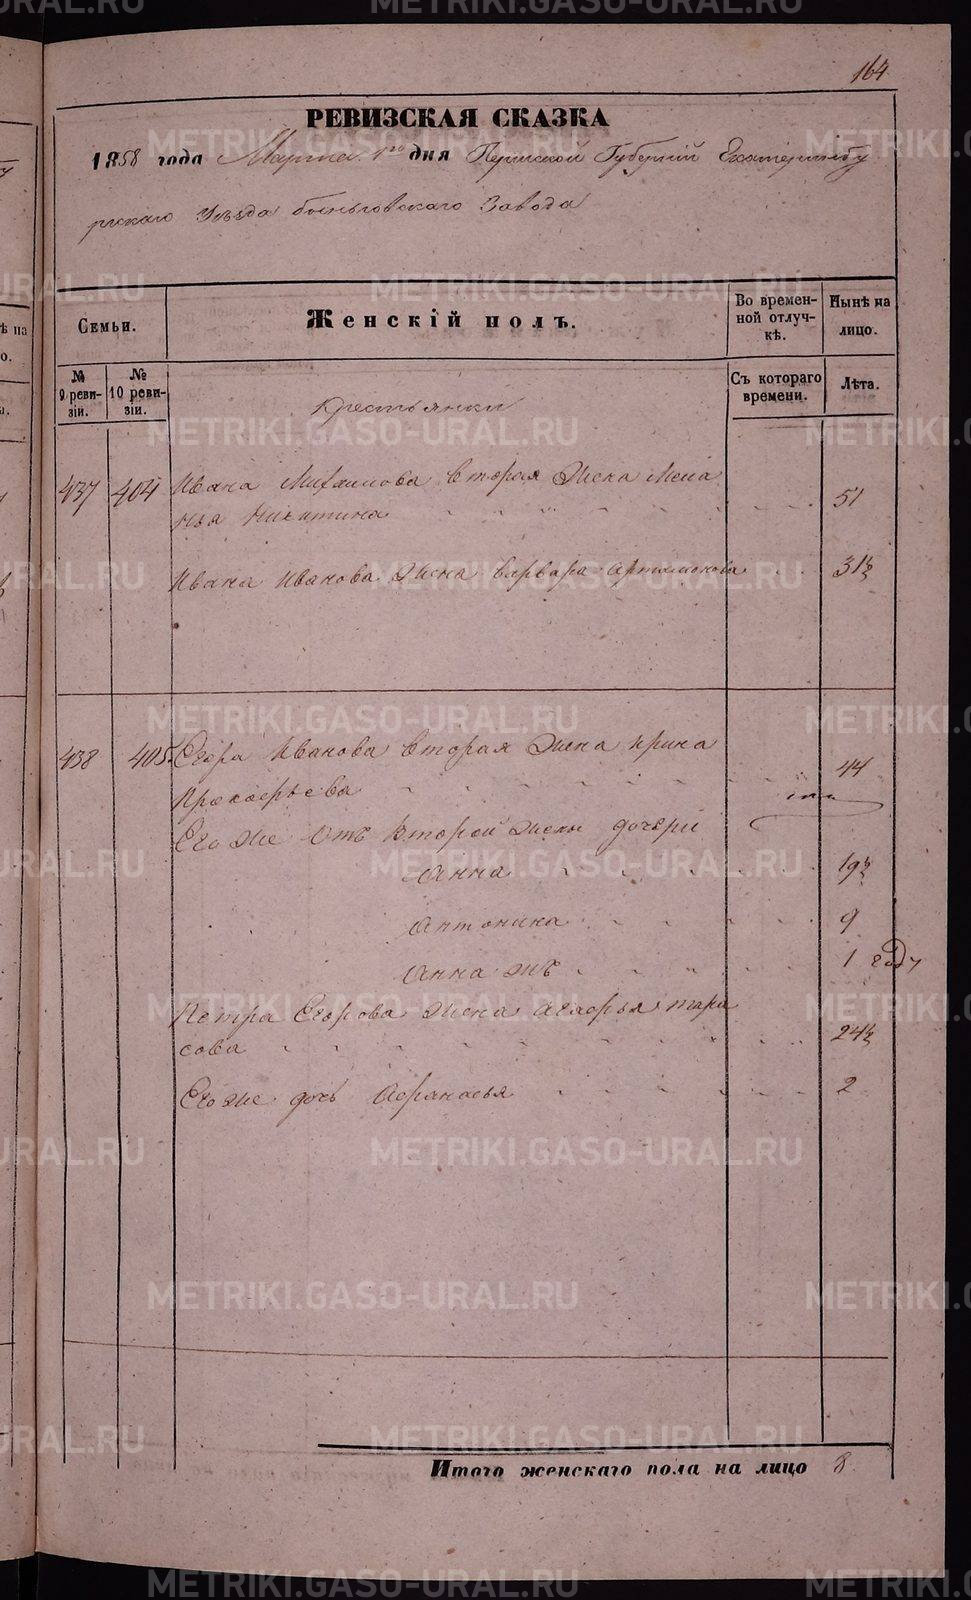 164
РЕВИЗСКАЯ СКАЗКА
1858 года Марта 1го дня Пермской Губерніи Екатеринбу
ргскаго Уѣзда быньговскаго Завода
Семьи.
Женскій полъ.
Во времен-
ной отлуч-
кѣ.
Нынѣ на
лицо.
№
9 реви-
зіи.
№
10 реви-
зіи.
Съ котораго
времени.
Лѣта.
Крестьянки
437 404 Ивана Михаилова вторая Жена Мела
нья Никитина 51
Ивана Иванова Жена Варвара Артамонова 31½
438 405 Егора Иванова вторая Жена Ирина
Прокофьева 44
Его же Отъ Второй жены дочери
Анна 19½
Антонина 9
Анна жъ 1 году
Петра Егорова Жена Агафья Тара
сова 24½
Его же дочь Афанасья 2
Итого женскаго пола на лицо 8
METRIKI.GASO-URAL.RU